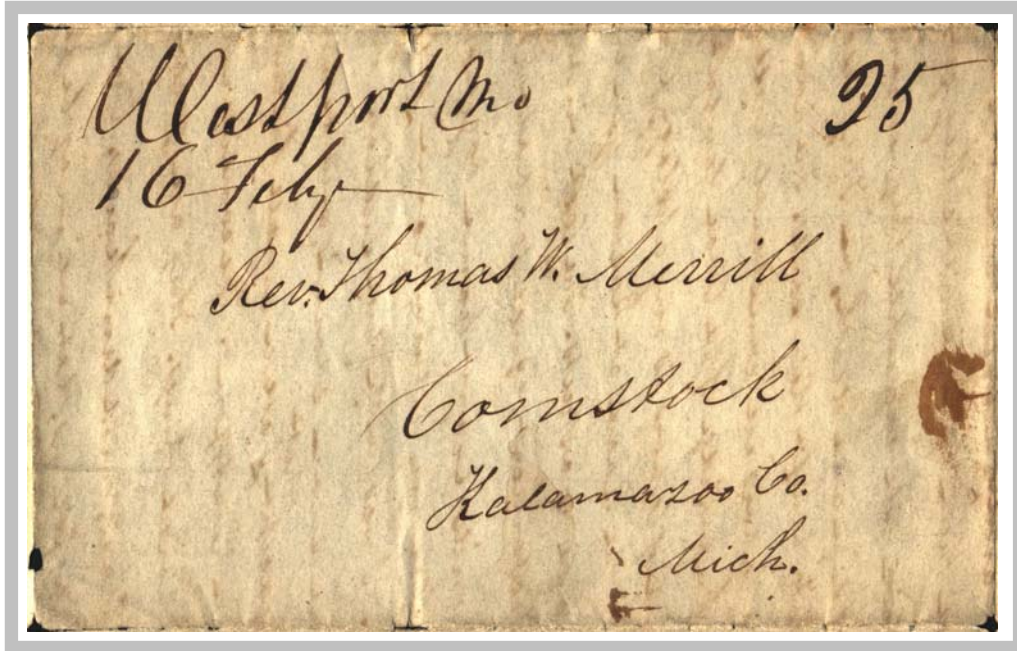 Westport Mo 25
16 Feby
Rev. Thomas W. Merrill
Comstock
Kalamazoo Co.
Mich.